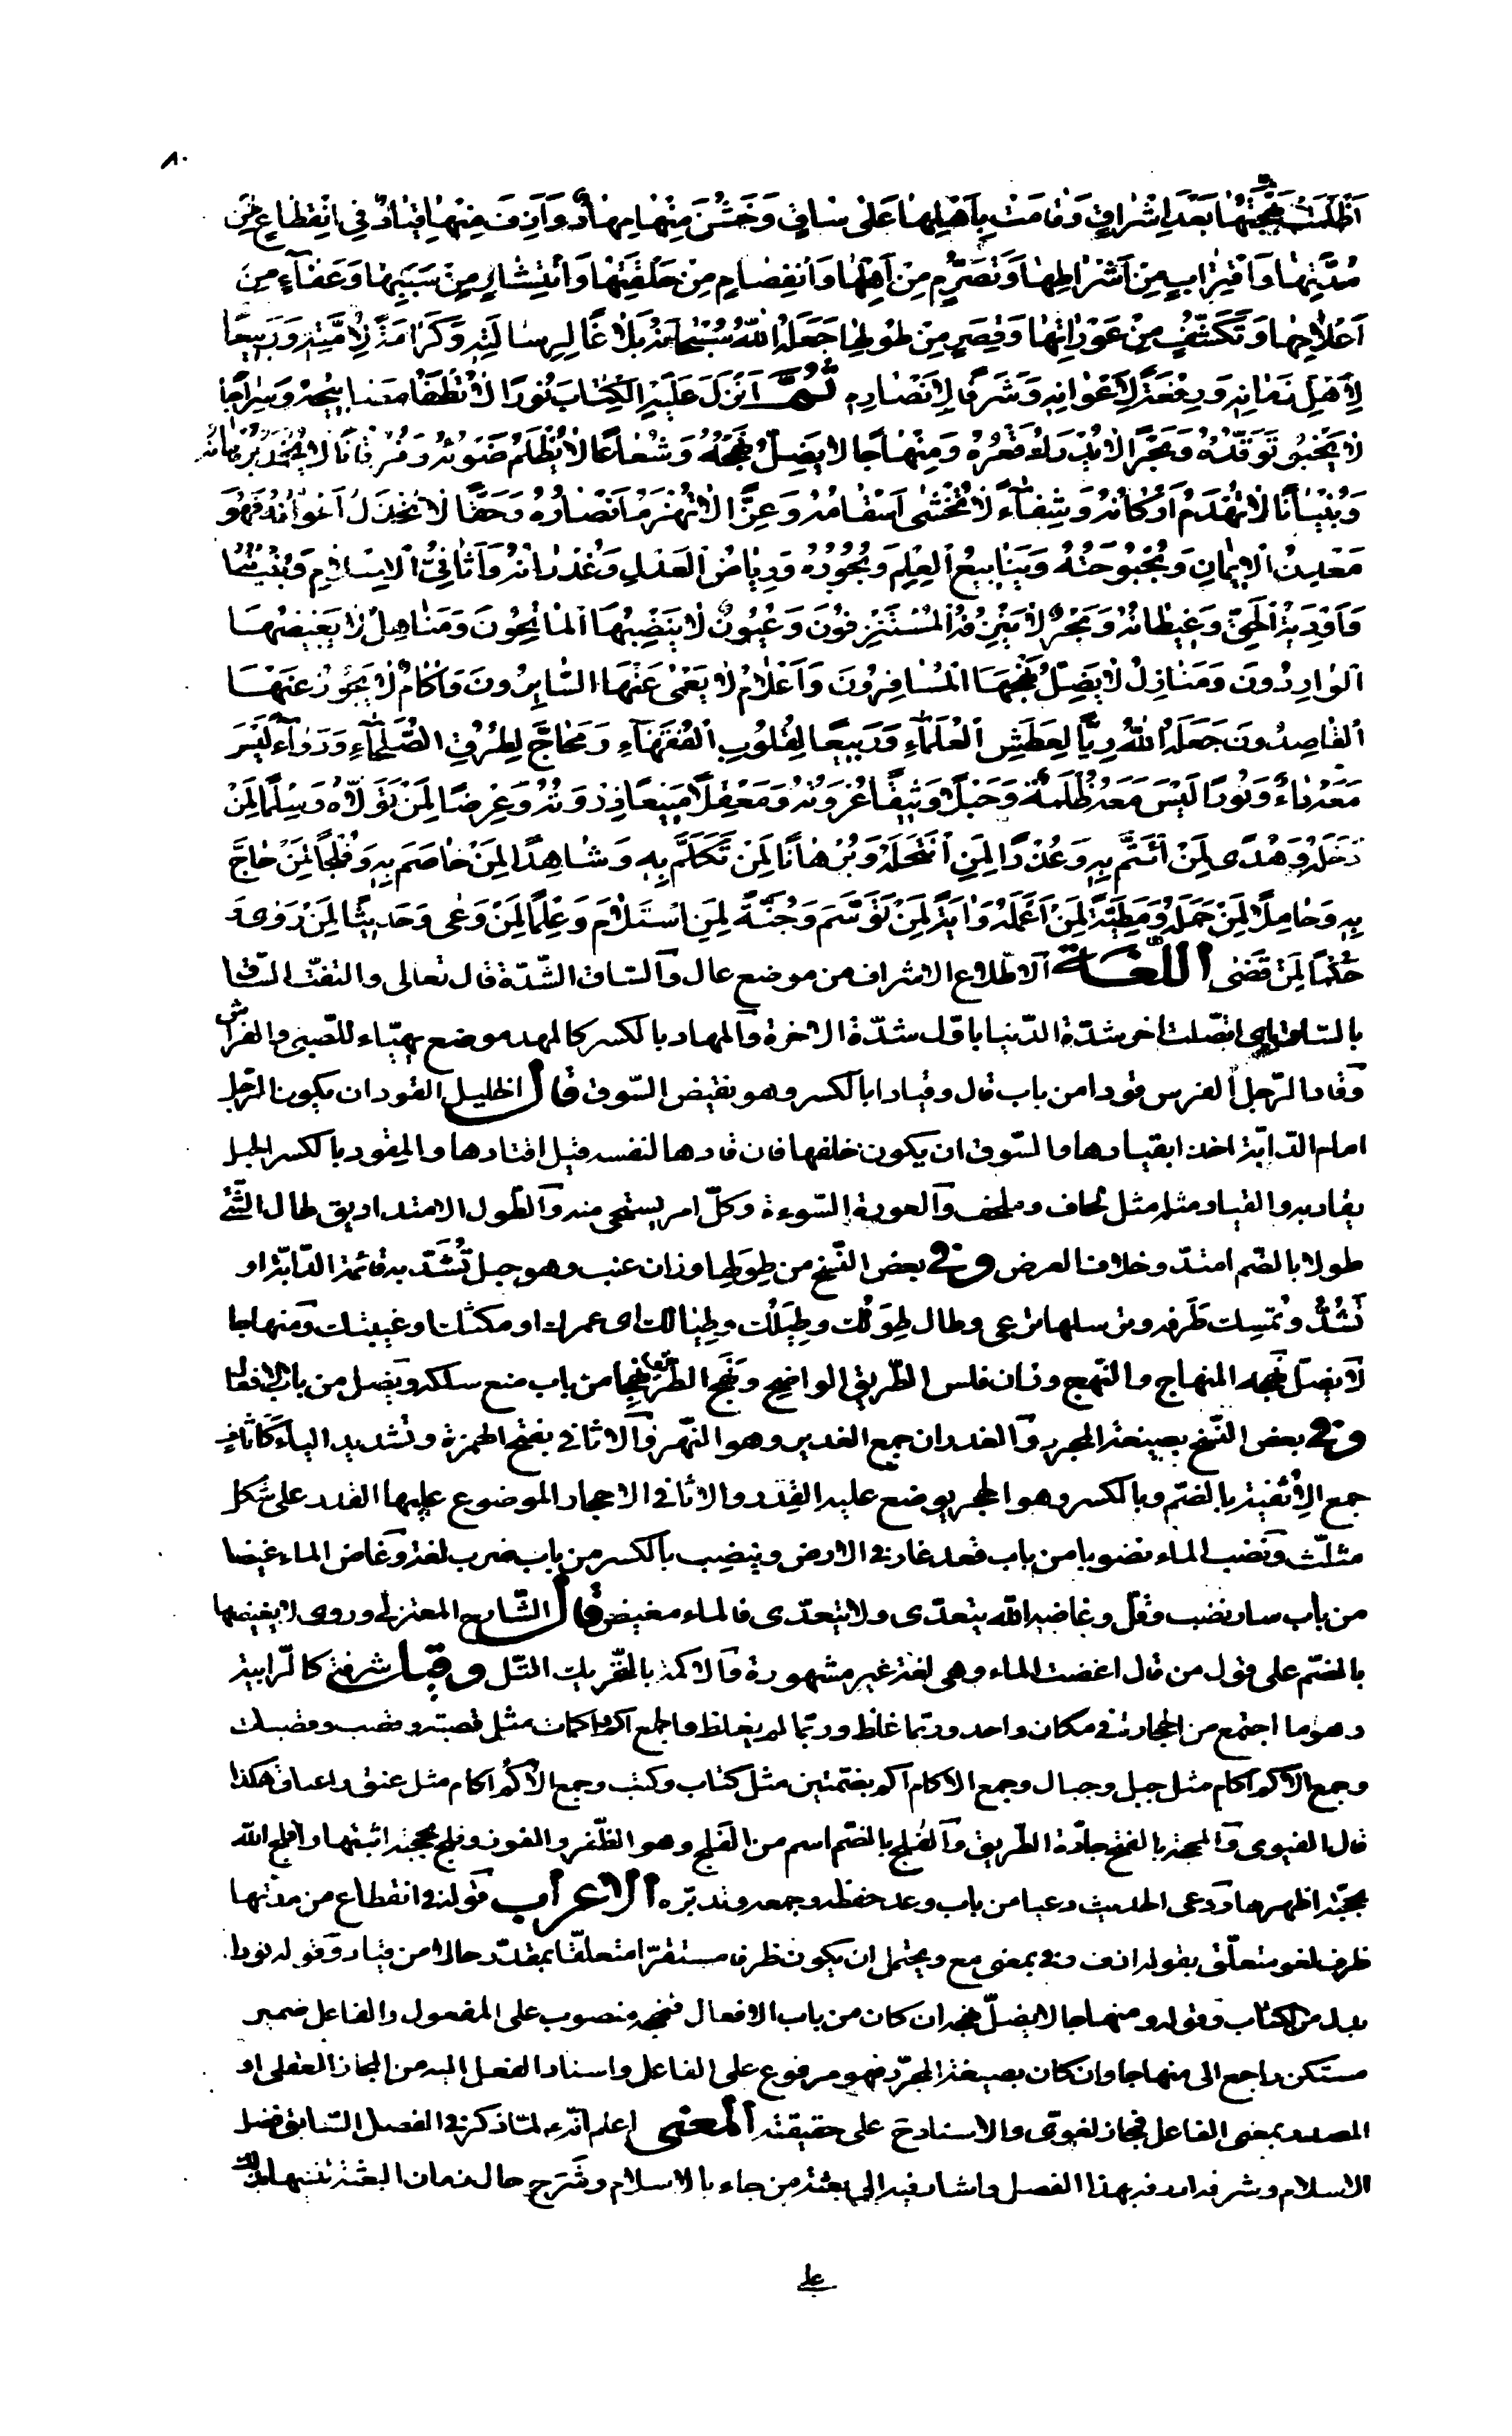 ٨٠
اَظْلَمَتْ بَهْجَتُهٰا بَعْدَ اِشْرٰاقٍ وَقٰامَتْ بِاَهْلِهٰا عَلىٰ سٰاقٍ وَخَشُنَ مِنْهٰا مِهٰادٌ وَاَزِفَ مِنْهٰا قِيٰادٌ فِي انْقِطٰاعٍ مِنْ
مُدَّتِهٰا وَاقْتِرٰابٍ مِنْ اَشْرٰاطِهٰا وَتَصَرُّمٍ مِنْ اَهْلِهٰا وَانْفِصٰامٍ مِنْ حَلْقَتِهٰا وَانْتِشٰارٍ مِنْ سَبَبِهٰا وَعَفٰآءٍ مِنْ
اَعْلاٰمِهٰا وَتَكَشُّفٍ مِنْ عَوْرٰاتِهٰا وَقِصَرٍ مِنْ طُولِهٰا جَعَلَهُ اللّٰهُ سُبْحٰانَهُ بَلاٰغًا لِرِسٰالَتِهِ وَكَرٰامَةً لِاُمَّتِهِ وَرَبِيعًا
لِاَهْلِ زَمٰانِهِ وَرِفْعَةً لِاَعْوٰانِهِ وَشَرَفًا لِاَنْصٰارِهِ ثُمَّ اَنْزَلَ عَلَيْهِ الْكِتٰابَ نُورًا لاٰ تُطْفَاُ مَصٰابِيحُهُ وَسِرٰاجًا
لاٰ يَخْبُو تَوَقُّدُهُ وَبَحْرًا لاٰ يُدْرَكُ قَعْرُهُ وَمِنْهٰاجًا لاٰ يُضِلُّ نَهْجُهُ وَشُعٰاعًا لاٰ يُظْلِمُ ضَوْئُهُ وَفُرْقٰانًا لاٰ يُخْمَدُ بُرْهٰانُهُ
وَبُنْيٰانًا لاٰ تُهْدَمُ اَرْكٰانُهُ وَشِفٰآءً لاٰ تُخْشٰى اَسْقٰامُهُ وَعِزًّا لاٰ تُهْزَمُ اَنْصٰارُهُ وَحَقًّا لاٰ تُخْذَلُ اَعْوٰانُهُ فَهُوَ
مَعْدِنُ الْاِيمٰانِ وَبُحْبُوحَتُهُ وَيَنٰابِيعُ الْعِلْمِ وَبُحُورُهُ وَرِيٰاضُ الْعَدْلِ وَغُدْرٰانُهُ وَاَثٰافِيُّ الْاِسْلاٰمِ وَبُنْيٰانُهُ
وَاَوْدِيَةُ الْحَقِّ وَغِيطٰانُهُ وَبَحْرٌ لاٰ يَنْزِفُهُ الْمُسْتَنْزِفُونَ وَعُيُونٌ لاٰ يُنْضِبُهَا الْمٰاتِحُونَ وَمَنٰاهِلُ لاٰ يَغِيضُهٰا
الْوٰارِدُونَ وَمَنٰازِلُ لاٰ يَضِلُّ نَهْجَهَا الْمُسٰافِرُونَ وَاَعْلاٰمٌ لاٰ يَعْمىٰ عَنْهَا السّٰائِرُونَ وَاٰكٰامٌ لاٰ يَجُوزُ عَنْهَا
الْقٰاصِدُونَ جَعَلَهُ اللّٰهُ رِيًّا لِعَطَشِ الْعُلَمٰآءِ وَرَبِيعًا لِقُلُوبِ الْفُقَهٰآءِ وَمَحٰاجَّ لِطُرُقِ الصُّلَحٰآءِ وَدَوٰآءً لَيْسَ
مَعَهُ دٰاءٌ وَنُورًا لَيْسَ مَعَهُ ظُلْمَةٌ وَحَبْلاً وَثِيقًا عُرْوَتُهُ وَمَعْقِلاً مَنِيعًا ذِرْوَتُهُ وَعِزًّا لِمَنْ تَوَلاّٰهُ وَسِلْمًا لِمَنْ
دَخَلَهُ وَهُدًى لِمَنِ ائْتَمَّ بِهِ وَعُذْرًا لِمَنِ انْتَحَلَهُ وَبُرْهٰانًا لِمَنْ تَكَلَّمَ بِهِ وَشٰاهِدًا لِمَنْ خٰاصَمَ بِهِ وَفَلْجًا لِمَنْ حٰاجَّ
بِهِ وَحٰامِلاً لِمَنْ حَمَلَهُ وَمَطِيَّةً لِمَنْ اَعْمَلَهُ وَاٰيَةً لِمَنْ تَوَسَّمَ وَجُنَّةً لِمَنِ اسْتَلْاَمَ وَعِلْمًا لِمَنْ وَعٰى وَحَدِيثًا لِمَنْ رَوٰى وَ
حُكْمًا لِمَنْ قَضٰى اللّغة الاطّلاع الاشراف من موضع عال والسّاق الشّدّة قال تعالى والتفّت السّاق
بالسّاق اى اتّصلت اخر شدّة الدّنيا باوّل شدّة الاخرة والمهاد بالكسر كالمهد موضع يهيّاء للصّبى والفراش
وقاد الرّجل الفرس قودا من باب قال وقيادا بالكسر وهو نقيض السّوق قال الخليل القود ان يكون الرّجل
امام الدّابّة اخذا بقيادها والسّوق ان يكون خلفها فان قادها لنفسه قيل اقتادها والمقود بالكسر الحبل
يقاد به والقياد مثله مثل لحاف وملحف والعورة السّوءة وكلّ امر يستحى منه والطّول الامتداد يق طال الشّئ
طولا بالضّم امتدّ وخلاف العرض وفى بعض النّسخ من طِوَلِها وزان عنب وهو حبل تُشَدّ به قائمة الدّابّة او
تَشُدُّ وتُمسك طَرَفه وترسلها ترعى وطال طِوَلُك وطِيَلُك وطِيالك اى عمرك او مكثك او غيبتك ومنهاجا
لا يضلّ نهجه المنهاج والنّهج وزان فلس الطّريق الواضح ونهج الطّريق نهجا من باب منع سلكه ويضل من باب الافعال
وفى بعض النّسخ بصيغة المجرد والغدران جمع الغدير وهو النّهر والاثافى بفتح الهمزة وتشديد الياء كاثاف
جمع الاُثفية بالضّم وبالكسر وهو الحجر يوضع عليه القِدر والاثافى الاحجار الموضوع عليها القدر على شكل
مثلّث ونضب الماء نضوبا من باب قعد غار فى الارض وينضِب بالكسر من باب ضرب لغة وغاض الماء غيضا
من باب سار نضب وقلّ وغاضه الله يتعدّى ولا يتعدّى فالماء مغيض قال الشّارح المعتزلى وروى لا يغيضها
بالضّم على قول من قال اغضت الماء وهى لغة غير مشهورة والاكمة بالتّحريك التّل وقيل شرفة كالرّابية
وهو ما اجتمع من الحجارة فى مكان واحد وربّما غلظ وربّما لم يغلظ والجمع اكم واكمات مثل قصبة وقصب وقصبات
وجمع الاكم اكام مثل جبل وجبال وجمع الاكام اكم بضمّتين مثل كتاب وكتب وجمع الاُكُم اكام مثل عنق واعناق هكذا
قال الفيومى والمحجّة بالفتح جادّة الطّريق والفُلج بالضّم اسم من الفَلج وهو الظّفر والفوز وفلج بحجّته اثبتها وافلج الله
بحجّته اظهرها ووعى الحديث وعيا من باب وعد حفظه وجمعه وتدبّره الاعراب قوله فى انقطاع من مدّتها
ظرف لغو متعلّق بقوله ازف وفى بمعنى مع ويحتمل ان يكون ظرفا مستقرّا متعلّقا بمقدّر حالا من قياد وقوله نورا
بدل من الكتاب وقوله ومنهاجا لا يضلّ نهجه ان كان من باب الافعال فنهجه منصوب على المفعول والفاعل ضمير
مستكن راجع الى منهاجا وان كان بصيغة المجرّد فهو مرفوع على الفاعل واسناد الفعل اليه من المجاز العقلى او
المصدر بمعنى الفاعل فمجاز لغوى والاسناد ح على حقيقته المعنى اعلم انّه ع لمّا ذكر فى الفصل السّابق فضل
الاسلام وشرفه اردفه بهذا الفصل واشار فيه الى بعثة من جاء بالاسلام وشرح حال زمان البعثة تنبيها بذلك
على